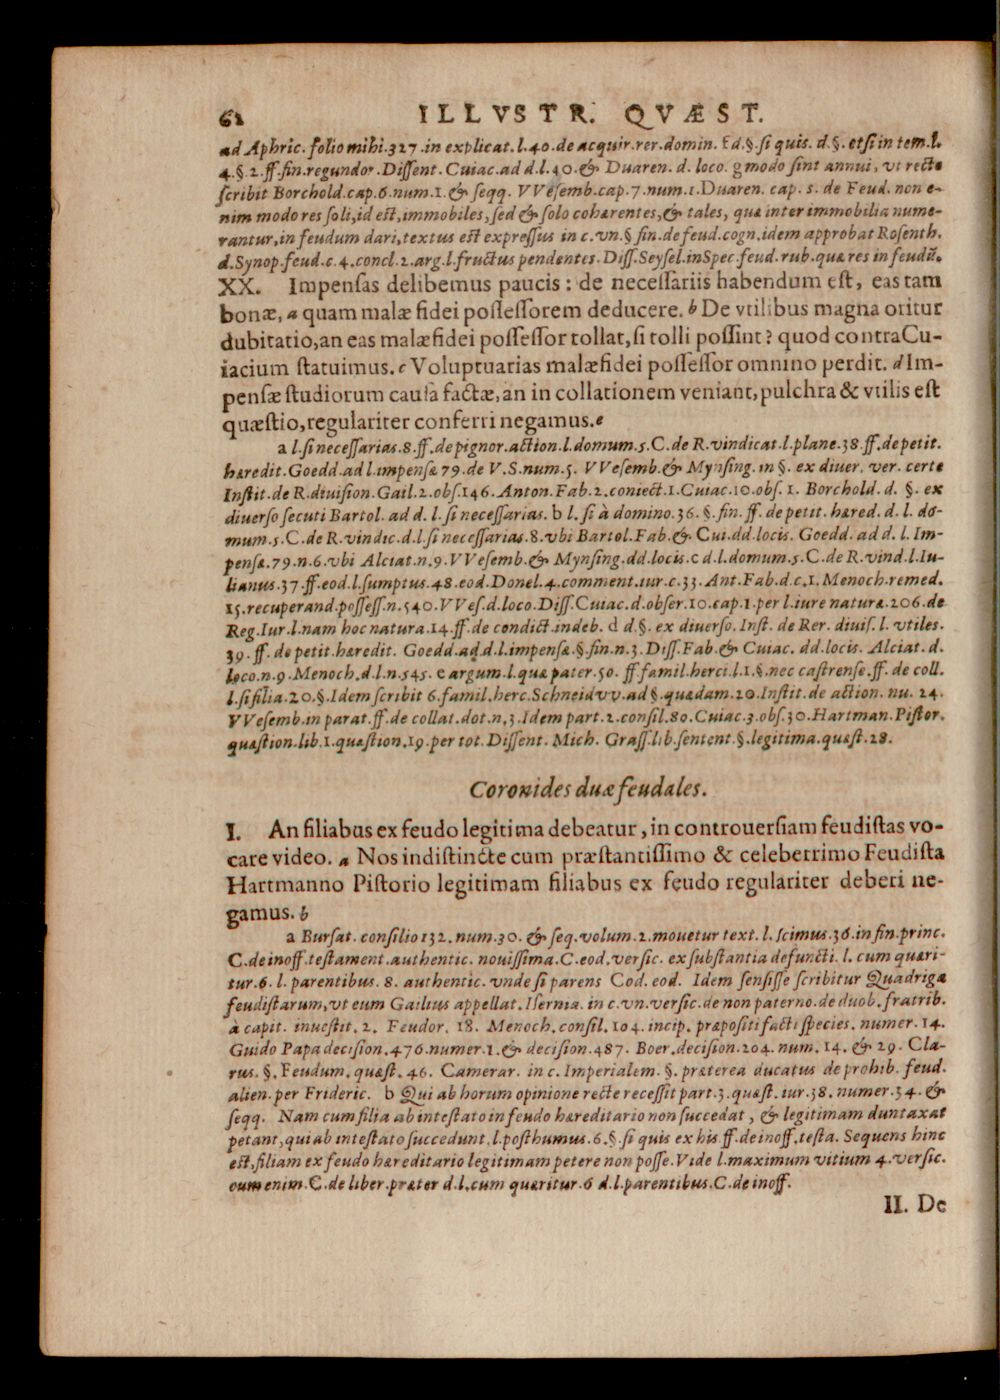 62 ILLVSTR. QVÆST.
ad Aphric. folio mihi.327.in explicat.l.40.de acquir.rer.domin. & d.§.si quis. d.§.etsi in tem.l.
4.§.2.ff.fin.regundor.Dissent.Cuiac.ad d.l.40.& Duaren. d. loco. g modo sint annui, vt recte
scribit Borchold.cap.6.num.1.& seqq. VVesemb.cap.7.num.1.Duaren. cap. 5. de Feud. non e-
nim modo res soli,id est,immobiles,sed & solo cohærentes,& tales, quæ inter immobilia nume-
rantur,in feudum dari,textus est expressus in c.vn.§ fin.de feud.cogn.idem approbat Rosenth.
d.Synop.feud.c.4.concl.2.arg.l.fructus pendentes.Diss.Seysel.inSpec.feud.rub.quæ res in feudũ.
XX. Impensas delibemus paucis: de necessariis habendum est, eas tam
bonæ, a quam malæ fidei possessorem deducere. b De vtilibus magna oritur
dubitatio,an eas malæfidei possessor tollat,si tolli possint? quod contraCu-
iacium statuimus. c Voluptuarias malæfidei possessor omnino perdit. d Im-
pensæ studiorum causa factæ,an in collationem veniant,pulchra & vtilis est
quæstio,regulariter conferri negamus.e
a l.si necessarias.8.ff.de pignor.action.l.domum.5.C.de R.vindicat.l.plane.38.ff.de petit.
hæredit.Goedd.ad l.impensæ 79.de V.S.num.5. VVesemb.& Mynsing.in §. ex diuer. ver. certe
Instit.de R.diuision.Gail.2.obs.146.Anton.Fab.2.coniect.1.Cuiac.10.obs.1. Borchold.d. §. ex
diuerso secuti Bartol. ad d. l.si necessarias. b l. si à domino.36.§.fin. ff. de petit. hæred. d. l. do-
mum.5.C.de R.vindic.d.l.si necessarias.8.vbi Bartol.Fab.& Cui.dd.locis. Goedd. ad d. l. Im-
pensæ.79.n.6.vbi Alciat.n.9.VVesemb.& Mynsing.dd.locis.c d.l.domum.5.C.de R.vind.l.Iu-
lianus.37.ff.eod.l.sumptus.48.eod.Donel.4.comment.iur.c.33.Ant.Fab.d.c.1.Menoch.remed.
15.recuperand.possess.n.540.VVes.d.loco.Diss.Cuiac.d.obser.10.cap.1.per l.iure naturæ.206.de
Reg.Iur.l.nam hoc natura.14.ff.de condict.indeb. d d.§. ex diuerso. Inst. de Rer. diuis. l. vtiles.
39. ff. de petit.hæredit. Goedd.ad.d.l.impensæ.§.fin.n.3.Diss.Fab.& Cuiac. dd.locis. Alciat. d.
loco.n.9.Menoch.d.l.n.545. e argum.l.quæ pater.50. ff famil.herci.l.1.§.nec castrense.ff. de coll.
l.si filia.20.§.Idem scribit 6.famil.herc.Schneidvv.ad §.quædam.20.Instit.de action. nu. 24.
VVesemb.in parat.ff.de collat.dot.n.3.Idem part.2.consil.80.Cuiac.3.obs.30.Hartman.Pistor.
quæstion.lib.1.quæstion.19.per tot.Dissent. Mich. Grass.lib.sentent.§.legitima.quæst.28.
Coronides duæ feudales.
I. An filiabus ex feudo legitima debeatur, in controuersiam feudistas vo-
care video. a Nos indistincte cum præstantissimo & celeberrimo Feudista
Hartmanno Pistorio legitimam filiabus ex feudo regulariter deberi ne-
gamus. b
a Bursat. consilio 132. num.30. & seq.volum.2.mouetur text. l. scimus.36.in fin.princ.
C.de inoff.testament.authentic. nouissima.C.eod.versic. ex substantia defuncti. l. cum quæri-
tur.6. l. parentibus. 8. authentic. vnde si parens Cod. eod. Idem sensisse scribitur Quadriga
feudistarum,vt eum Gailius appellat.Isernia. in c.vn.versic.de non paterno.de duob.fratrib.
à capit. inuestit. 2. Feudor. 18. Menoch.consil.104.incip. præpositi facti species. numer. 14.
Guido Papa decision.476.numer.1.& decision.487. Boer.decision.204. num. 14. & 29. Cla-
rus. §. Feudum. quæst. 46. Camerar. in c. Imperialem. §. præterea ducatus de prohib. feud.
alien.per Frideric. b Qui ab horum opinione recte recessit part.3.quæst.iur.38.numer.34.&
seqq. Nam cum filia ab intestato in feudo hæreditario non succedat, & legitimam duntaxat
petant,qui ab intestato succedunt.l.posthumus.6.§.si quis ex his.ff.de inoff.testa. Sequens hinc
est,filiam ex feudo hæreditario legitimam petere non posse.Vide l.maximum vitium 4.versic.
cum enim.C.de liber.præter d.l.cum quæritur.6 d.l.parentibus.C.de inoff.
II. De